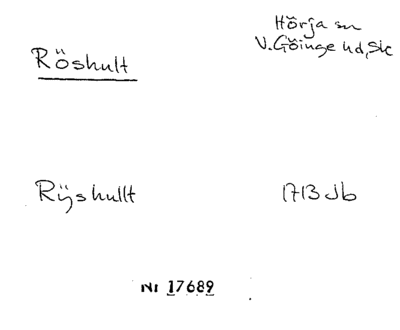 Hörja sn
Röshult
V. Göinge hd, Sk
Rÿshullt
1713 Jb
NI 17689